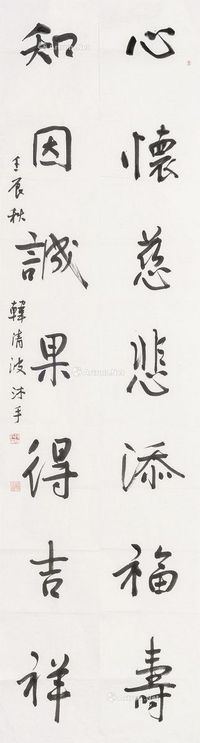 心懷慈悲添福壽
知因誠果得吉祥
壬辰秋 韓清波沐手